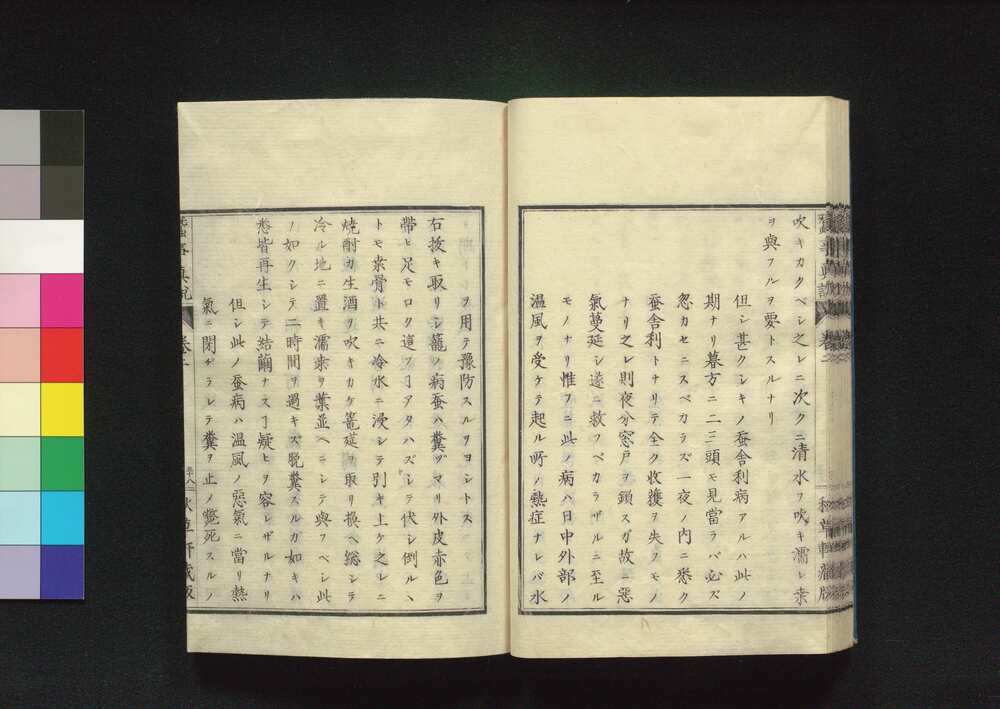 吹キカクベシ之レニ次クニ清水ヲ吹キ濡レ桒
ヲ與フルヲ要トスルナリ
但シ甚クシキノ蚕舎利病アルハ此ノ
期ナリ暮方ニ二三頭モ見當ラバ必ズ
忽カセニスベカラズ一夜ノ内ニ悉ク
蚕舎利トナリテ全ク收獲ヲ失フモノ
ナリ之レ則夜分窓戸ヲ鎖スガ故ニ惡
氣蔓延シ遂ニ救フベカラザルニ至ル
モノナリ惟フニ此ノ病ハ日中外部ノ
温風ヲ受ケテ起ル所ノ熱症ナレバ水
ヲ用テ豫防スルヲヨシトス
石拔キ取リシ籠ノ病蚕ハ糞ヅマリ外皮赤色ヲ
帶ヒ足モロク這フヿアタハズシテ伏シ倒ルヽ
トモ桒骨ト共ニ冷水ニ浸シテ引キ上ケ之レニ
焼酎カ生酒ヲ吹キカケ篭莚ヲ取リ換ヘ総シテ
冷ル地ニ置キ濡桒ヲ葉並ヘニシテ與フベシ此
ノ如クシテ二時間ヲ過キズ脱糞スルガ如キハ
悉皆再生シテ結繭ナスヿ疑ヒヲ容レザルナリ
但シ此ノ蚕病ハ温風ノ惡氣ニ當リ熱
氣ニ閉ヂラレテ糞ヲ止メ斃死スルノ